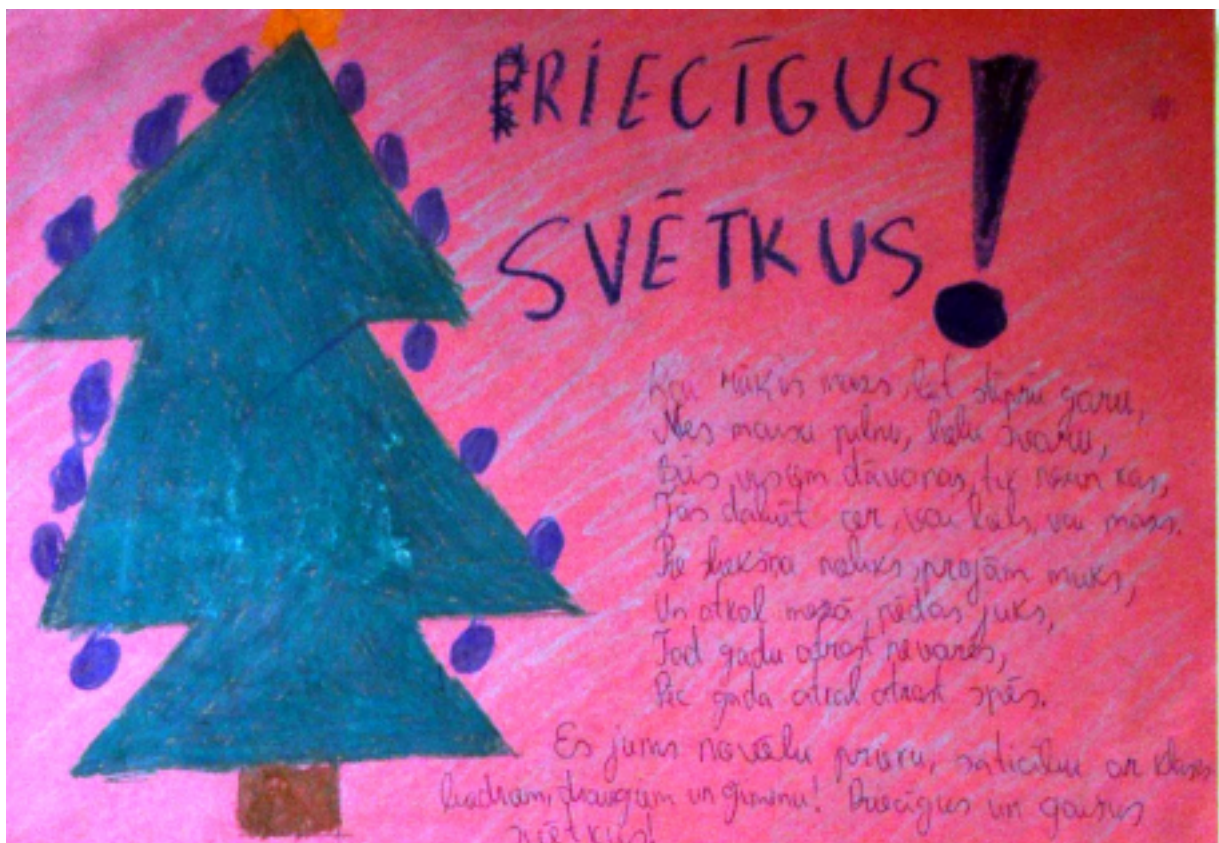 PRIECĪGUS
SVĒTKUS!
mazs, bet stipru garu,
Nes maisu pilnu, lielu svaru,
Būs visiem dāvanas,
Tās dabūt var, vai liels, vai mazs.
Pie sliekšņa noliks, projām muks,
Un atkal mežā pēdas juks,
Tad gadu atrast nevarēs,
Pēc gada atkal atrast spēs.
Es jums novēlu prieku, saticību ar klases
biedriem, draugiem un ģimeni! Priecīgus un gaišus
svētkus!